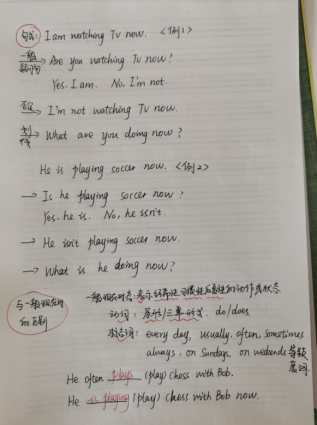 句式: I am watching Tv now. <例1>
一般疑问 → Are you watching Tv now?
Yes. I am. No, I'm not.
否定 → I'm not watching Tv now.
划线 → What are you doing now?
He is playing soccer now. <例2>
→ Is he playing soccer now?
Yes. he is. No, he isn't.
→ He isn't playing soccer now.
→ What is he doing now?
与一般现在时的区别
一般现在时态: 表示经常性、习惯性的动作或状态
动词: 原形/三单形式. do/does
标志词: every day, usually. often, sometimes
always, on Sundays, on weekends 等频度词
He often plays (play) chess with Bob.
He is playing (play) chess with Bob now.